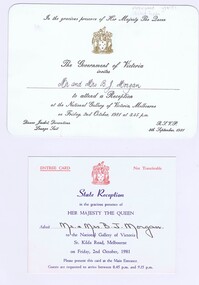 In the gracious presence of Her Majesty The Queen
The Government of Victoria
invites
Mr and Mrs B J Morgan
to attend a Reception
at the National Gallery of Victoria, Melbourne
on Friday, 2nd October 1981 at 8.45 p.m.
Dinner Jacket Decorations
Lounge Suit
R.S.V.P.
ENTREE CARD
Not Transferable
State Reception
in the gracious presence of
HER MAJESTY THE QUEEN
Admit Mr & Mrs B. J. Morgan
to the National Gallery of Victoria
St. Kilda Road, Melbourne
on Friday, 2nd October, 1981
Please present this card at the Main Entrance.
Guests are requested to arrive between 8.15 p.m. and